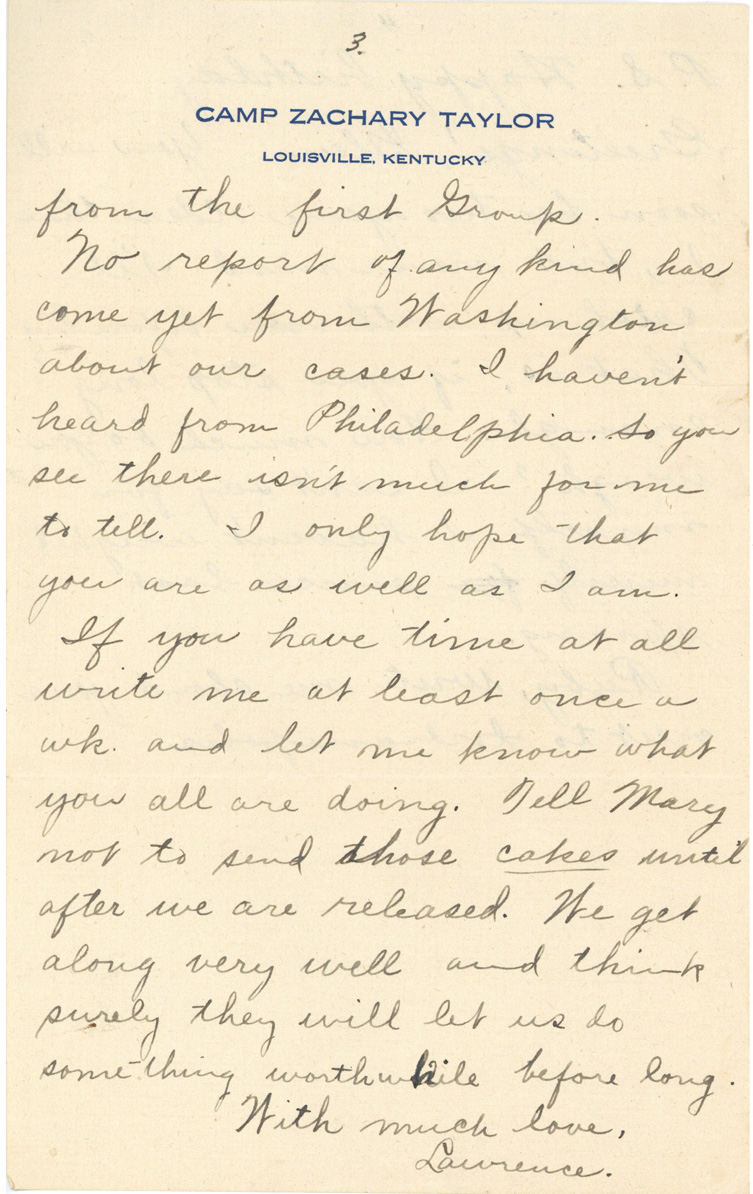 3.
CAMP ZACHARY TAYLOR
LOUISVILLE, KENTUCKY
from the first Group.
No report of any kind has
come yet from Washington
about our cases. I haven't
heard from Philadelphia. So you
see there isn't much for me
to tell. I only hope that
you are as well as I am.
If you have time at all
write me at least once a
wk. and let me know what
you all are doing. Tell Mary
not to send those cakes until
after we are released. We get
along very well and think
surely they will let us do
something worthwhile before long.
With much love,
Lawrence.